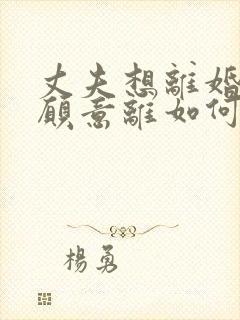 丈夫想離婚
願意離如何
楊勇